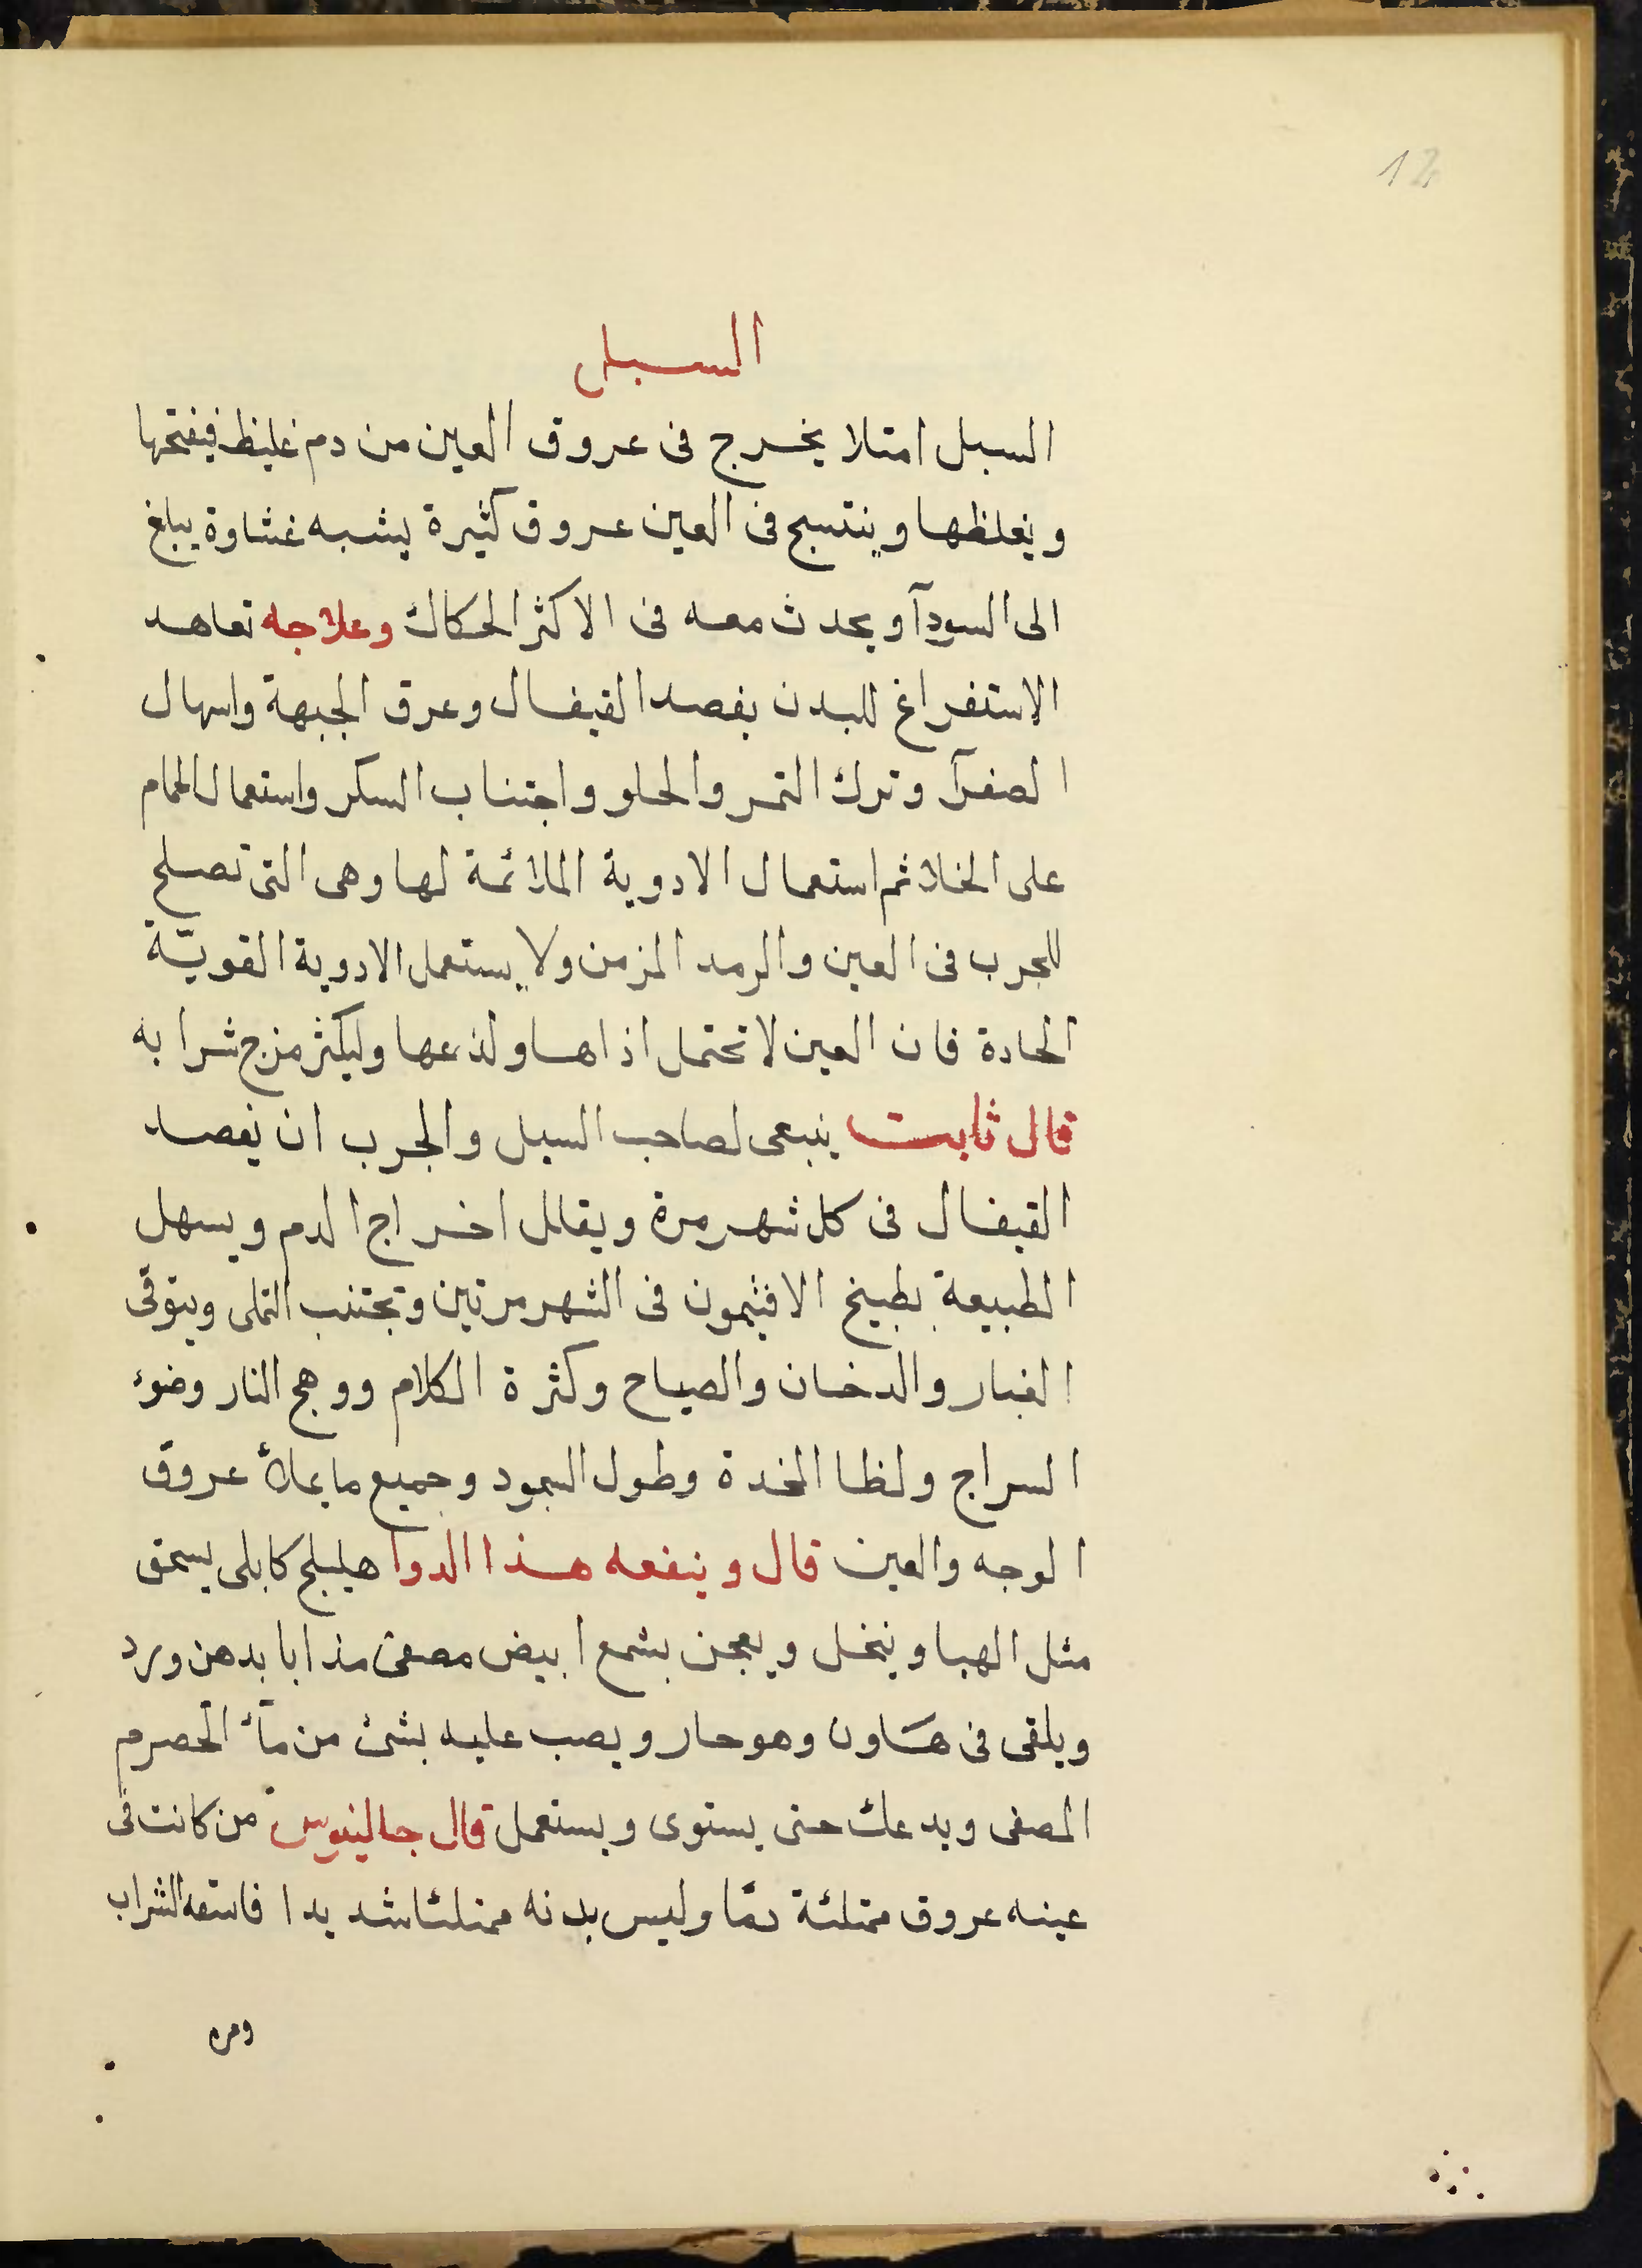 12
السبل
السبل امتلا يخرج فى عروق العين من دم غليظ فيفتحها
ويغلظها وينتسج فى العين عروق كثيرة يشبه غشاوة يبلغ
الى السودآ ويحدث معه فى الاكثر الحكاك وعلاجه تعاهد
الاستفراغ للبدن بفصد القيفال وعرق الجبهة واسهال
الصفرآ وترك التمر والحلو واجتناب السكر واستعمال الحمام
على الخلا ثم استعمال الادوية الملائمة لها وهى التى تصلح
للجرب فى العين والرمد المزمن ولا يستعمل الادوية القويّة
الحادة فان العين لا تحتمل اذاها ولذعها وليكثر مزج شرابه
قال ثابت ينبعى لصاحب السبل والجرب ان يفصد
القيفال فى كل شهر مرة ويقلل اخراج الدم ويسهل
الطبيعة بطبيخ الافثيمون فى الشهر مرتين وتجتنب التملى ويتوقى
الغبار والدخان والصياح وكثرة الكلام ووهج النار وضوء
السراج ولظا المخدة وطول السجود وجميع ما يملأ عروق
الوجه والعين قال وينفعه هذا الدوا هليلج كابلى يسحق
مثل الهبا وينخل ويعجن بشمع ابيض مصفى مذابا بدهن ورد
ويلقى فى هاون وهو حار ويصب عليه بشئ من مآء الحصرم
المصفى ويدعك حتى يستوى ويستعمل قال جالينوس من كانت فى
عينه عروق ممتلئة دمّا وليس بدنه ممتلئا شديدا فاسقه الشراب
ومره